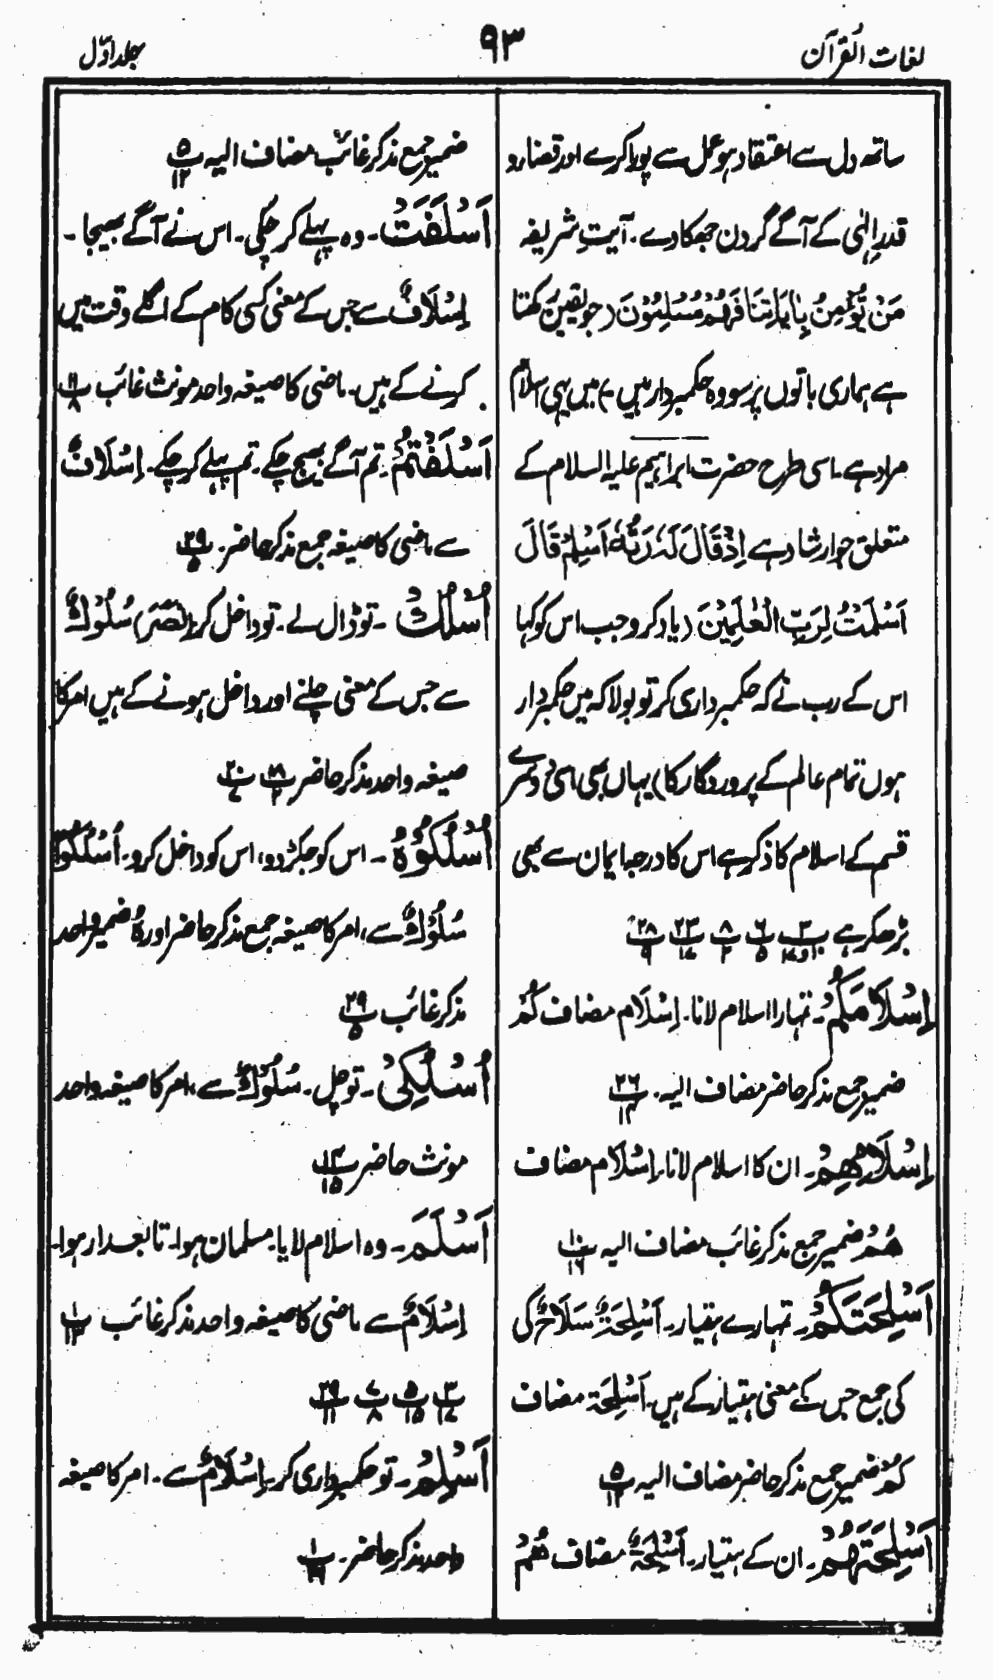 لغات القرآن
۹۳
جلد اوّل
ساتھ دل سے اعتقاد ہو عمل سے پورا کرے اور قضا رو
قدرِ الٰہی کے آگے گردن جھکا دے۔ آیتِ شریفہ
مَنْ يُّؤْمِنُ بِاٰيَاتِنَا فَهُمْ مُّسْلِمُوْنَ (جو یقین رکھتا
ہے ہماری باتوں پر سو وہ حکمبردار ہیں) میں یہی اسلام
مراد ہے۔ اسی طرح حضرت ابراہیم علیہ السلام کے
متعلق جو ارشاد ہے اِذْ قَالَ لَهٗ رَبُّهٗ اَسْلِمْ قَالَ
اَسْلَمْتُ لِرَبِّ الْعٰلَمِيْنَ (یاد کرو جب اس کو کہا
اس کے رب نے کہ حکمبرداری کر تو بولا کہ میں حکمبردار
ہوں تمام عالم کے پروردگار کا) یہاں بھی اسی دوسرے
قسم کے اسلام کا ذکر ہے اس کا درجہ ایمان سے بھی
بڑھ کر ہے
اِسْلَامَكُمْ۔ تمہارا اسلام لانا۔ اِسْلَام مضاف كُمْ
ضمیر جمع مذکر حاضر مضاف الیہ۔
اِسْلَامِهِمْ۔ ان کا اسلام لانا۔ اِسْلَام مضاف
هُمْ ضمیر جمع مذکر غائب مضاف الیہ
اَسْلِحَتِكُمْ۔ تمہارے ہتیار۔ اَسْلِحَةٌ سَلَاحٌ کی
کی جمع جس کے معنی ہتیار کے ہیں۔ اَسْلِحَة مضاف
كُمْ ضمیر جمع مذکر حاضر مضاف الیہ
اَسْلِحَتَهُمْ۔ ان کے ہتیار۔ اَسْلِحَةٌ مضاف هُمْ
ضمیر جمع مذکر غائب مضاف الیہ
اَسْلَفَتْ۔ وہ پہلے کر چکی۔ اس نے آگے بھیجا۔
اِسْلَافٌ سے جس کے معنی کسی کام کے اگلے وقت میں
کرنے کے ہیں۔ ماضی کا صیغہ واحد مونث غائب
اَسْلَفْتُمْ۔ تم آگے بھیج چکے۔ تم پہلے کر چکے۔ اِسْلَافٌ
سے ماضی کا صیغہ جمع مذکر حاضر۔
اُسْلُكْ۔ تو ڈال لے۔ تو داخل کر (نصر) سُلُوْكٌ
سے جس کے معنی چلنے اور داخل ہونے کے ہیں امر کا
صیغہ واحد مذکر حاضر
اُسْلُكُوْهُ۔ اس کو جکڑ دو، اس کو داخل کرو۔ اُسْلُكُوْا
سُلُوْكٌ سے، امر کا صیغہ جمع مذکر حاضر اور هُ ضمیر واحد
مذکر غائب
اُسْلُكِيْ۔ تو چل۔ سُلُوْكٌ سے، امر کا صیغہ واحد
مونث حاضر
اَسْلَمَ۔ وہ اسلام لایا۔ مسلمان ہوا۔ تابعدار ہوا۔
اِسْلَامٌ سے ماضی کا صیغہ واحد مذکر غائب
اَسْلِمْ۔ تو حکمبرداری کر۔ اِسْلَامٌ سے۔ امر کا صیغہ
واحد مذکر حاضر۔